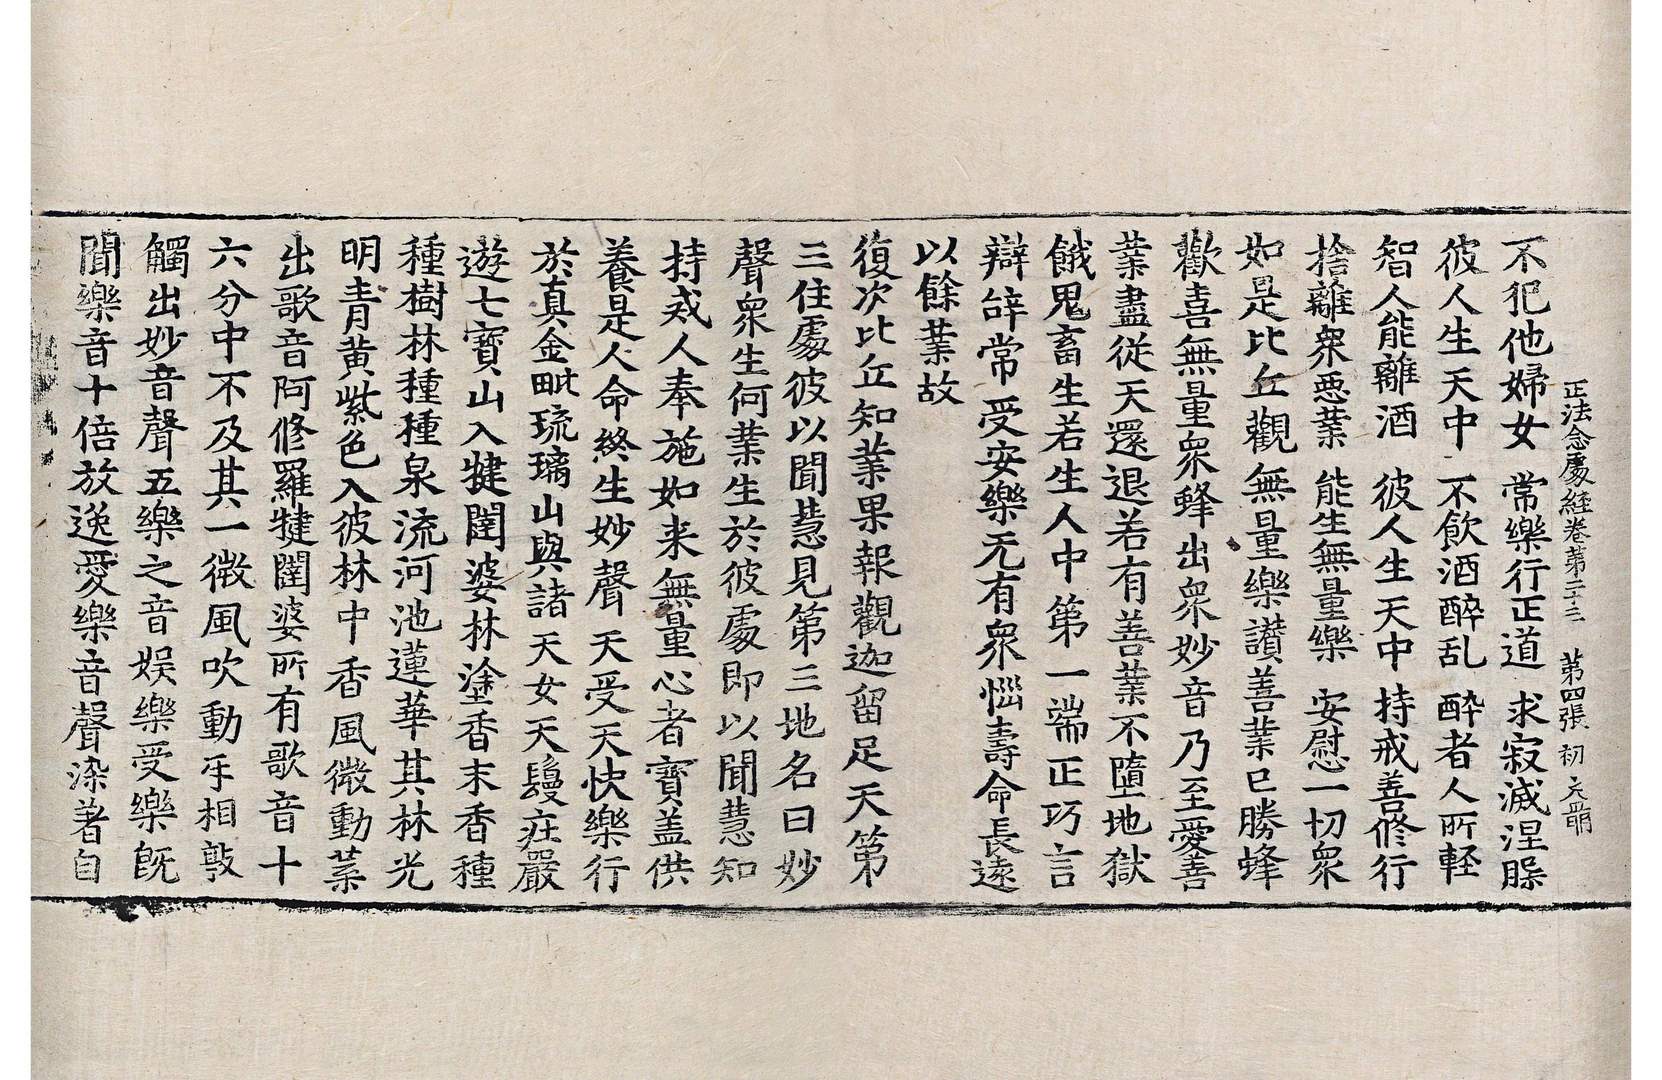 正法念處經卷第二十三　第四張　初　
不犯他婦女　常樂行正道　求寂滅涅槃
彼人生天中　不飲酒醉乱　醉者人所軽
智人能離酒　彼人生天中　持戒善修行
捨離衆惡業　能生無量樂　安慰一切衆
如是比丘觀無量樂讃善業已勝蜂
歡喜無量衆蜂出衆妙音乃至愛善
業盡從天還退若有善業不墮地獄
餓鬼畜生若生人中第一端正巧言
辯辞常受安樂无有衆惱壽命長遠
以餘業故
復次比丘知業果報觀迦留足天第
三住處彼以聞慧見第三地名曰妙
聲衆生何業生於彼處即以聞慧知
持戒人奉施如来無量心者寶蓋供
養是人命終生妙聲天受天快樂行
於真金毗琉璃山與諸天女天鬘莊嚴
遊七寶山入犍闥婆林塗香末香種
種樹林種種泉流河池蓮華其林光
明青黄紫色入彼林中香風微動葉
出歌音阿修羅犍闥婆所有歌音十
六分中不及其一微風吹動互相敦
觸出妙音聲五樂之音娯樂受樂既
聞樂音十倍放逸愛樂音聲染著自